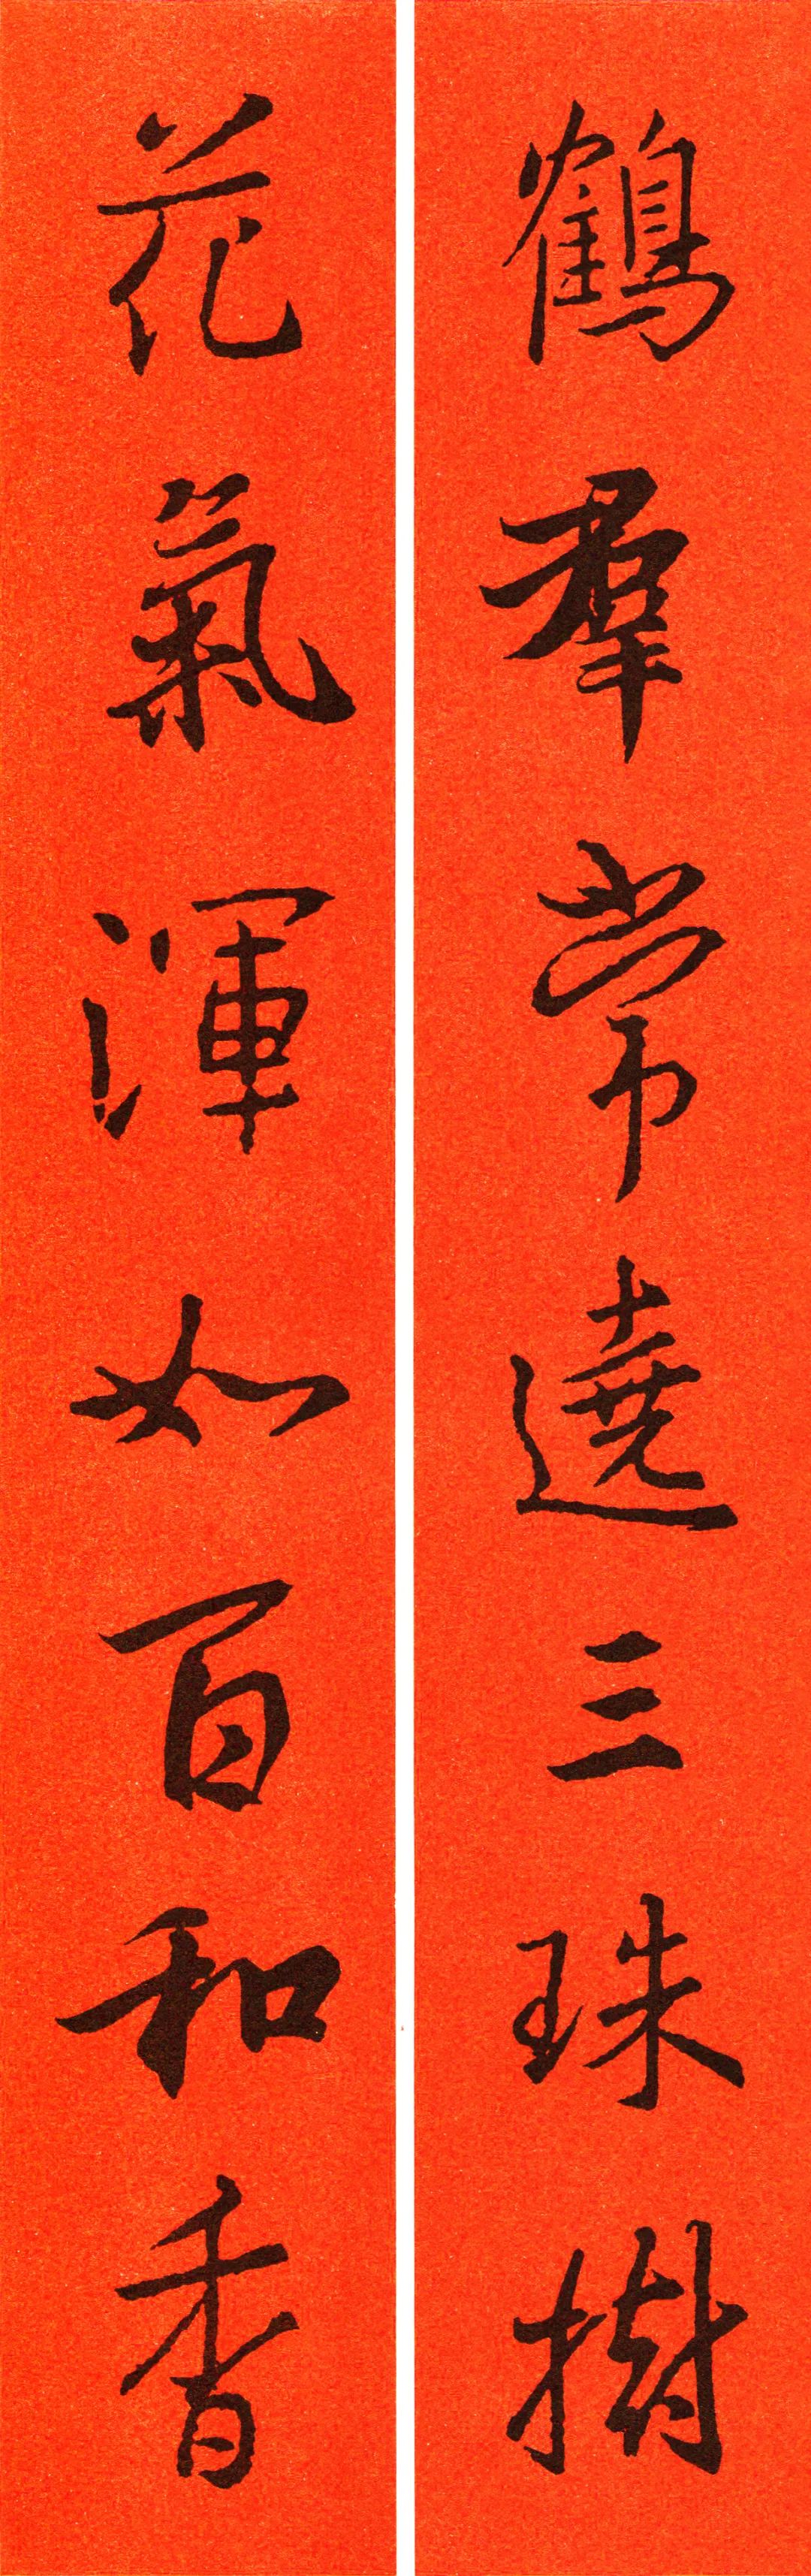 鶴羣常遶三珠樹
花氣渾如百和香